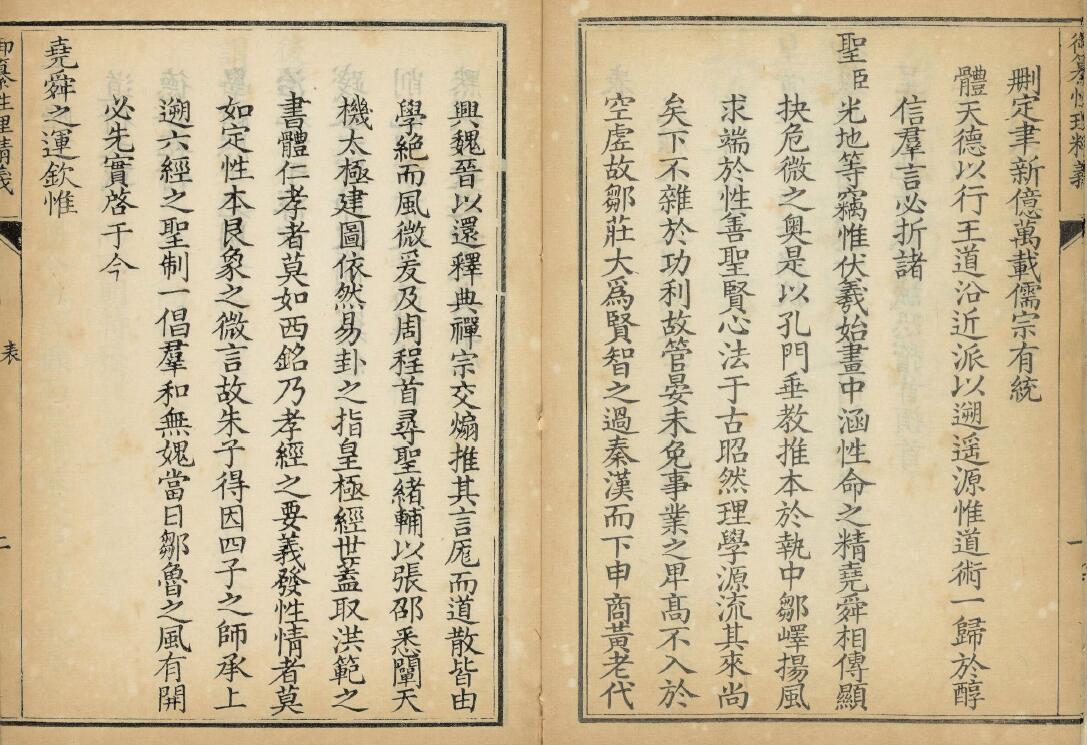 御纂性理精義
一
刪定聿新億萬載儒宗有統
體天德以行王道沿近派以遡遥源惟道術一歸於醇
信羣言必折諸
聖臣光地等竊惟伏羲始畫中涵性命之精堯舜相傳顯
抉危微之奧是以孔門垂教推本於執中鄒嶧揚風
求端於性善聖賢心法于古昭然理學源流其來尚
矣下不雜於功利故管晏未免事業之卑高不入於
空虛故鄒莊大爲賢智之過秦漢而下申商黃老代
興魏晉以還釋典禪宗交煽推其言厖而道散皆由
學絶而風微爰及周程首尋聖緒輔以張邵悉闡天
機太極建圖依然易卦之指皇極經世蓋取洪範之
書體仁孝者莫如西銘乃孝經之要義發性情者莫
如定性本艮象之微言故朱子得因四子之師承上
遡六經之聖制一倡羣和無媿當日鄒魯之風有開
必先實啓于今
堯舜之運欽惟
御纂性理精義
表
二